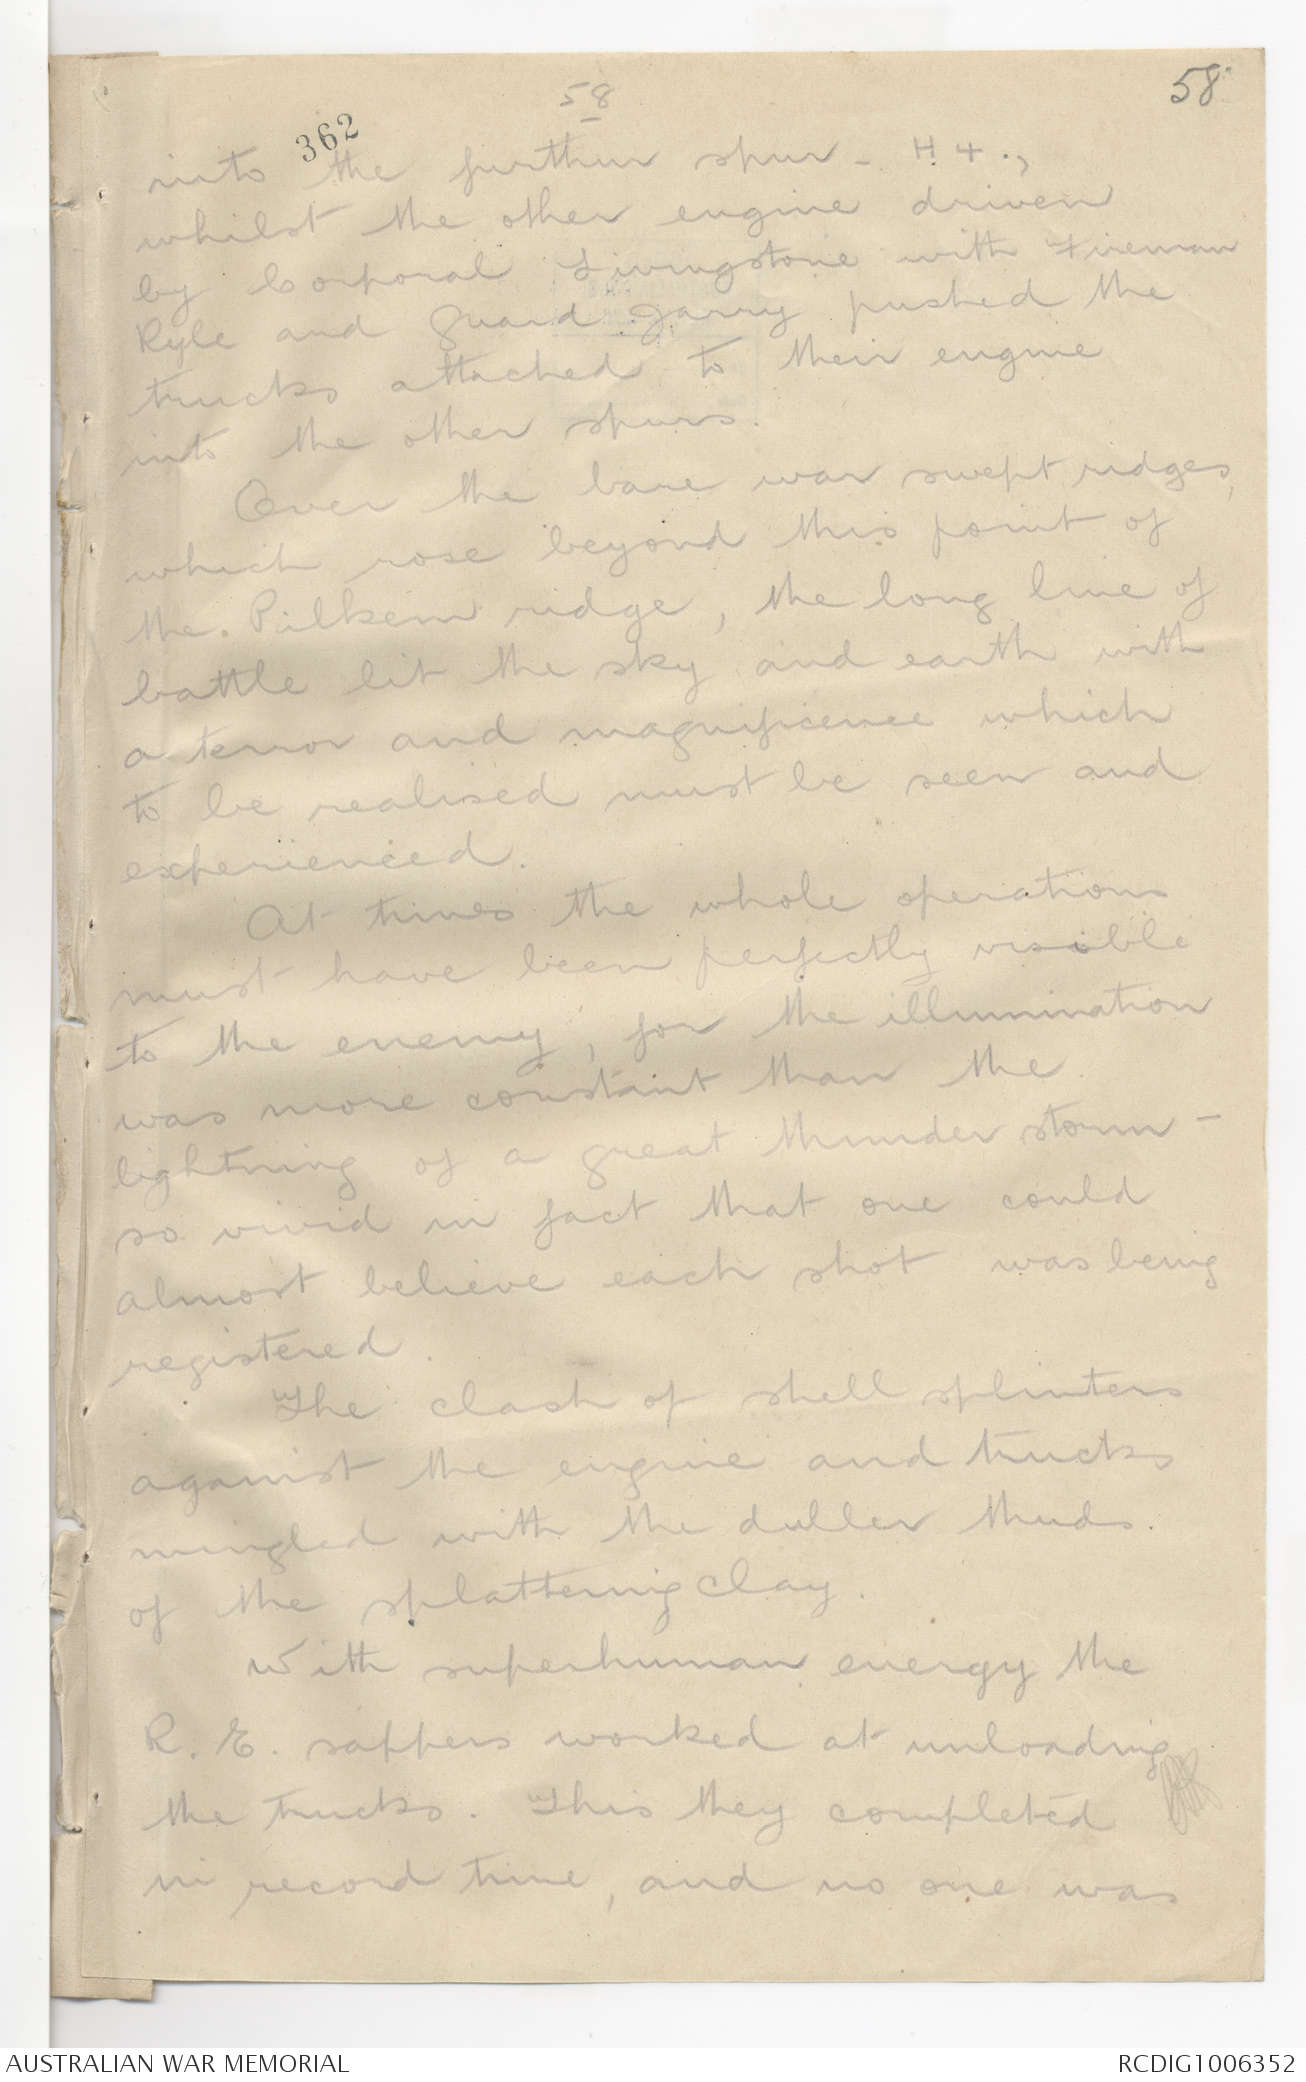 58
58
362
into the further spur - H 4.,
whilst the other engine driven
by Corporal Livingstone with Fireman
Ryle and Guard Jarry pushed the
trucks attached to their engine
into the other spurs.
Over the bare war swept ridges,
which rose beyond this point of
the. Pilkem ridge, the long line of
battle lit the sky and earth with
a terror and magnificence which
to be realised must be seen and
experienced.
At times the whole operations
must have been perfectly visible
to the enemy, for the illumination
was more constant than the
lightning of a great thunder storm -
so vivid in fact that one could
almost believe each shot was being
registered.
The clash of shell splinters
against the engine and trucks
mingled with the duller thuds.
of the splattering clay.
With superhuman energy the
R. E. sappers worked at unloading
the trucks. This they completed
in record time, and no one was
AUSTRALIAN WAR MEMORIAL
RCDIG1006352